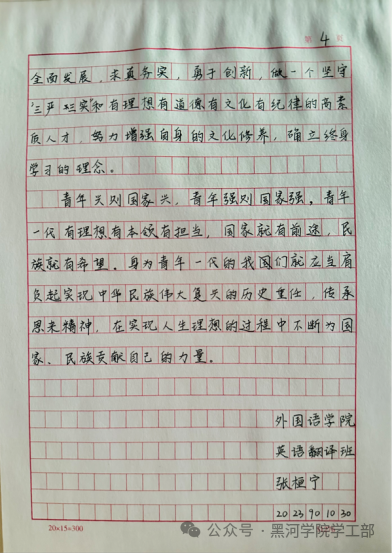 第 4 页
全面发展，求真务实，勇于创新，做一个坚守
三严三实和有理想有道德有文化有纪律的高素
质人才，努力增强自身的文化修养，确立终身
学习的理念。
青年兴则国家兴，青年强则国家强。青年
一代有理想有本领有担当，国家就有前途，民
族就有希望。身为青年一代的我国们就应当肩
负起实现中华民族伟大复兴的历史重任，传承
思来精神，在实现人生理想的过程中不断为国
家、民族贡献自己的力量。
外国语学院
英语翻译班
张桓宁
20 23 90 10 30
20×15=300
公众号·黑河学院学工部